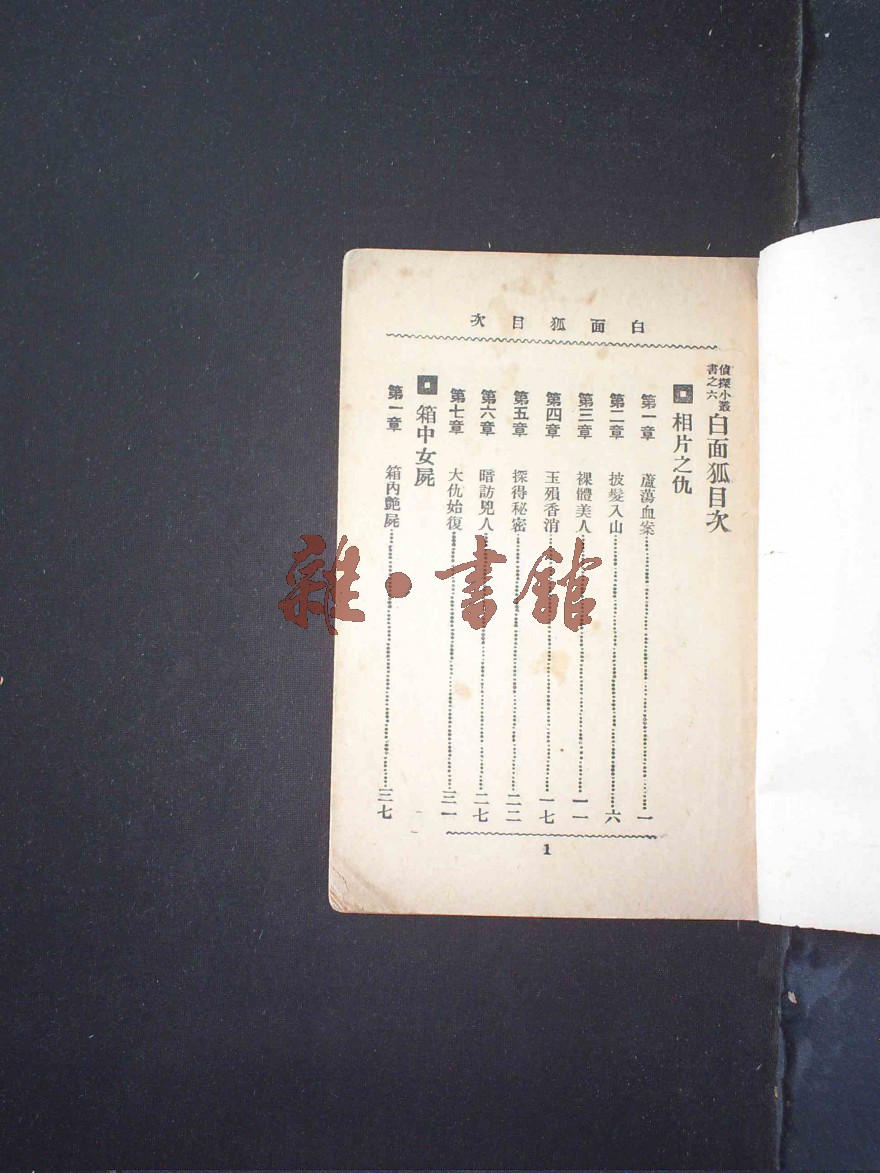 白面狐目次
偵探小叢書之六 白面狐目次
相片之仇
第一章 蘆蕩血案 一
第二章 披髮入山 六
第三章 裸體美人 一一
第四章 玉殞香消 一七
第五章 探得秘密 二二
第六章 暗訪兇人 二七
第七章 大仇始復 三一
箱中女屍
第一章 箱內艷屍 三七
1
雜·書館